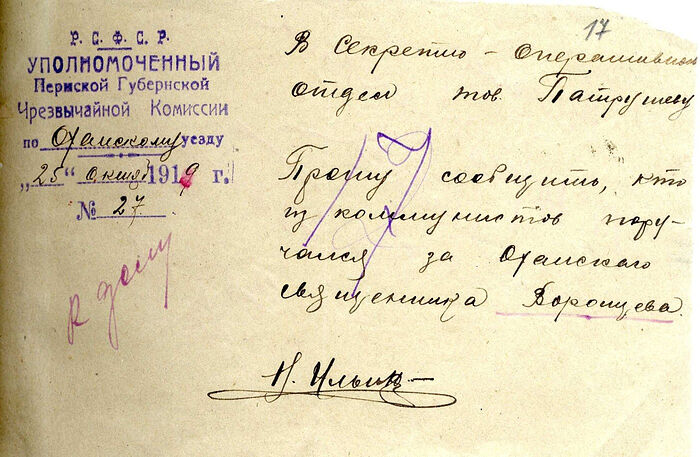 17
Р. С. Ф. С. Р.
УПОЛНОМОЧЕННЫЙ
Пермской Губернской
Чрезвычайной Комиссии
по Оханскому уезду
„25“ октяб 1919 г.
№ 27.
В Секретно-Оперативный
отдел тов. Патрушеву
Прошу сообщить, кто
из коммунистов пору-
чался за Оханского
священника Воронцева.
к делу
Н. Ильин